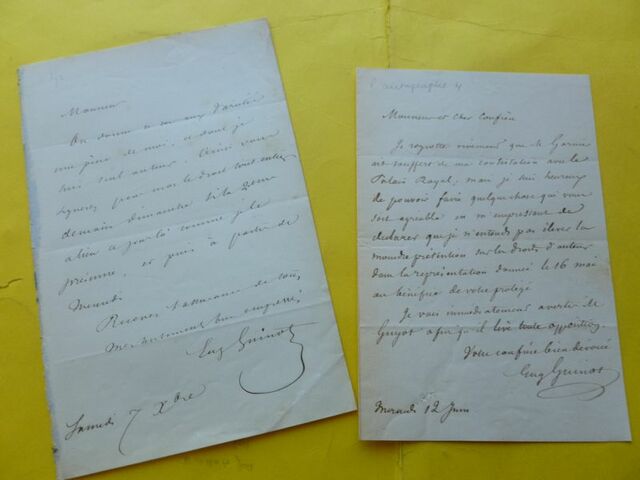 Monsieur
On donne ce soir aux Variétés
une pièce de moi, et dont je
suis seul auteur. Ainsi vous
signerez pour moi le droit tout entier
demain dimanche si la 2eme
a lieu ce jour là comme je le
et puis à partir de
Mercredi
Recevez l'assurance de tous
mes sentimens bien empressés
Eug Guinot
Samedi 7 Xbre
autographes 4
Monsieur et cher Confrère
Je regrette vivement que M Garnier
ait souffert de ma contestation avec le
Palais Royal; mais je suis heureux
de pouvoir faire quelque chose qui vous
soit agréable en m'empressant de
déclarer que je n'entends pas élever la
moindre prétention sur les droits d'auteur
dans la représentation donnée le 16 mai
au bénéfice de votre protégé
Je vais immédiatement avertir M
Guyot afin qu'il lève toute opposition.
Votre confrère bien dévoué
Eug Guinot
Mercredi 12 Juin